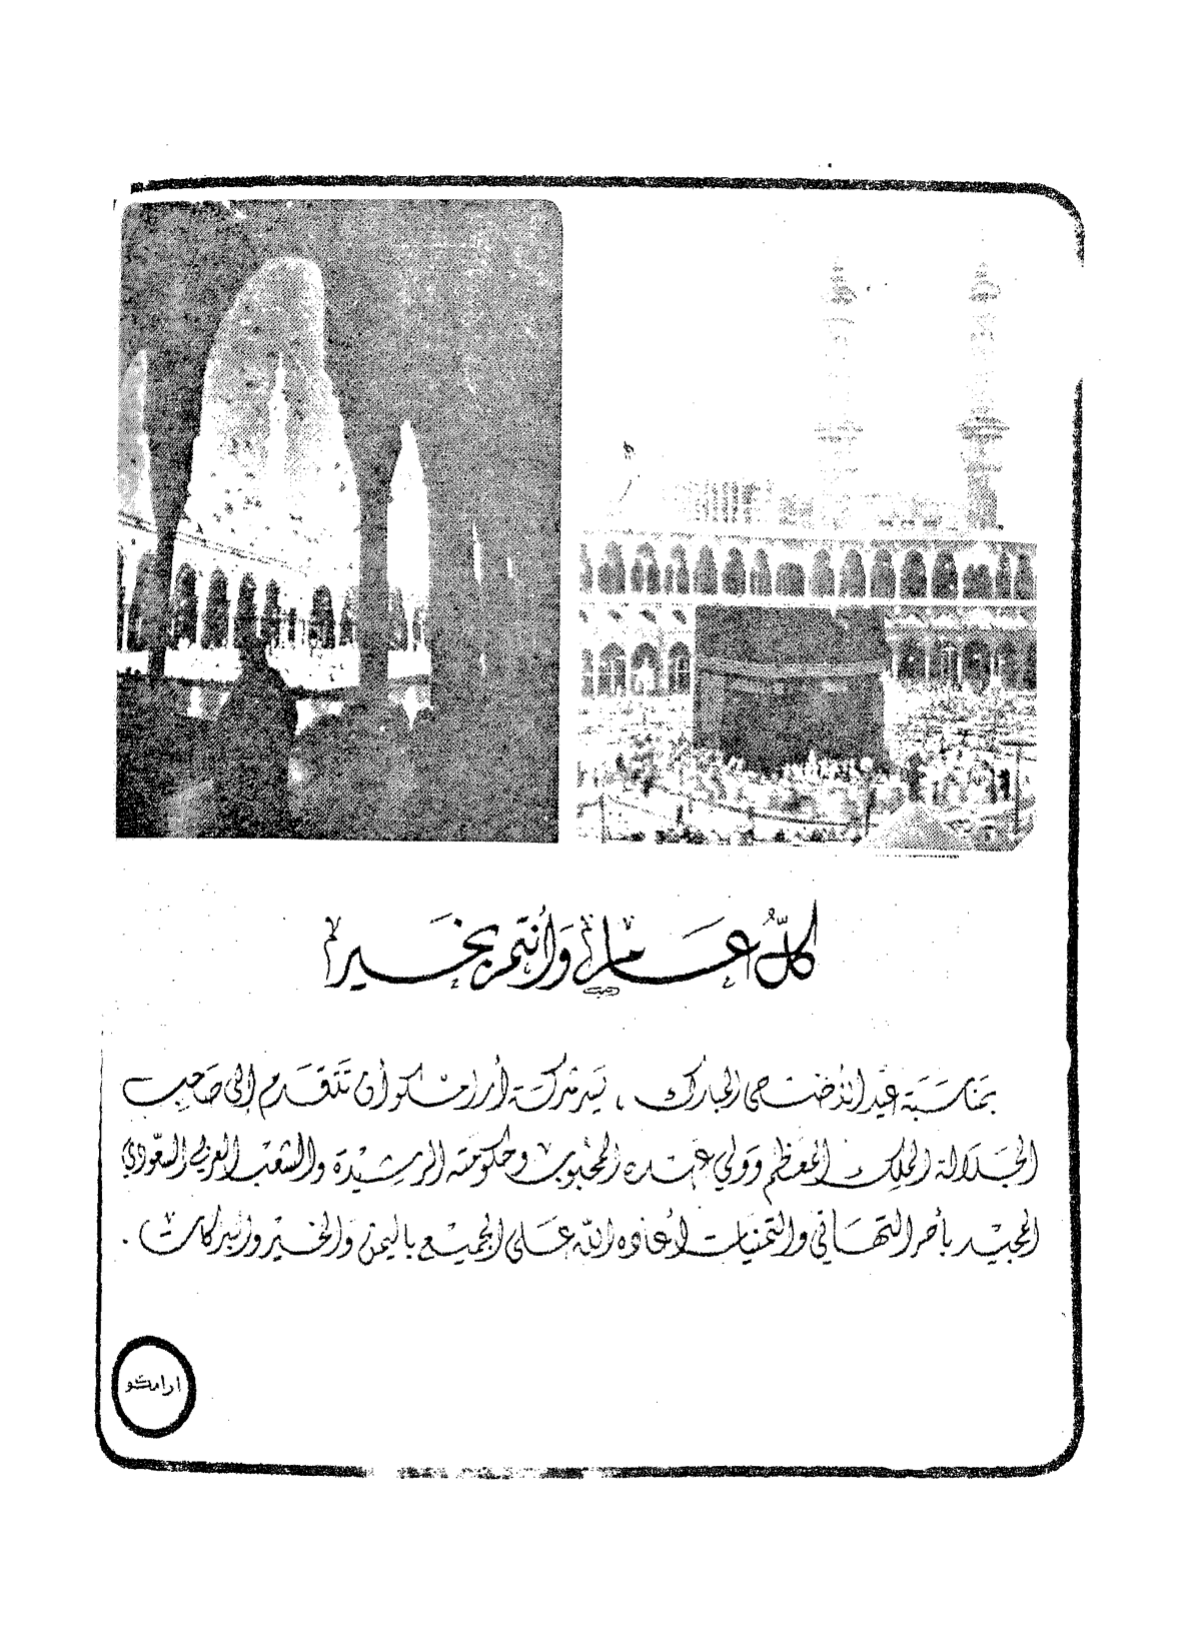 كلُّ عام وأنتم بخير
بمناسبة عيد الأضحى المبارك ، يسر شركة أرامكو أن تتقدم إلى صاحب
الجلالة الملك المعظم وولي عهده المحبوب وحكومته الرشيدة والشعب العربي السعودي
المجيد بأحر التهاني والتمنيات لأعاده الله على الجميع باليمن والخير والبركات .
ارامكو